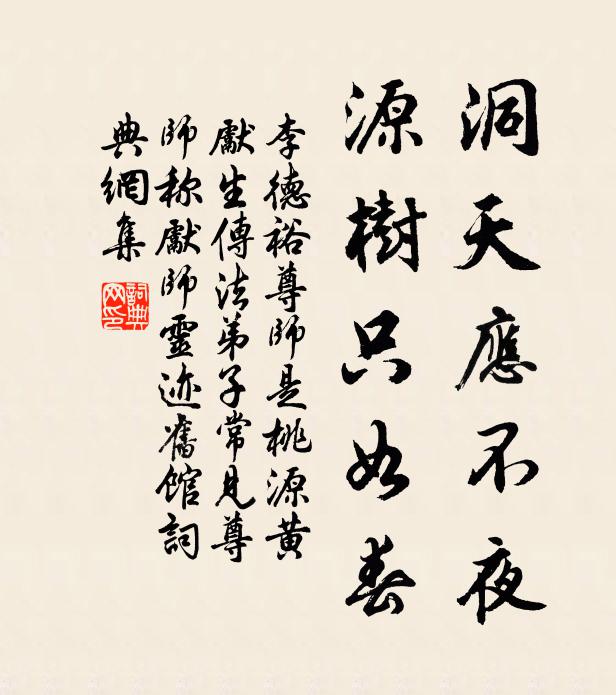 洞天應不夜
源樹只如春
李德裕尊師是桃源黃
獻生傳法弟子常見尊
師称獻師靈迹舊館詞
典網集
詞典
网印